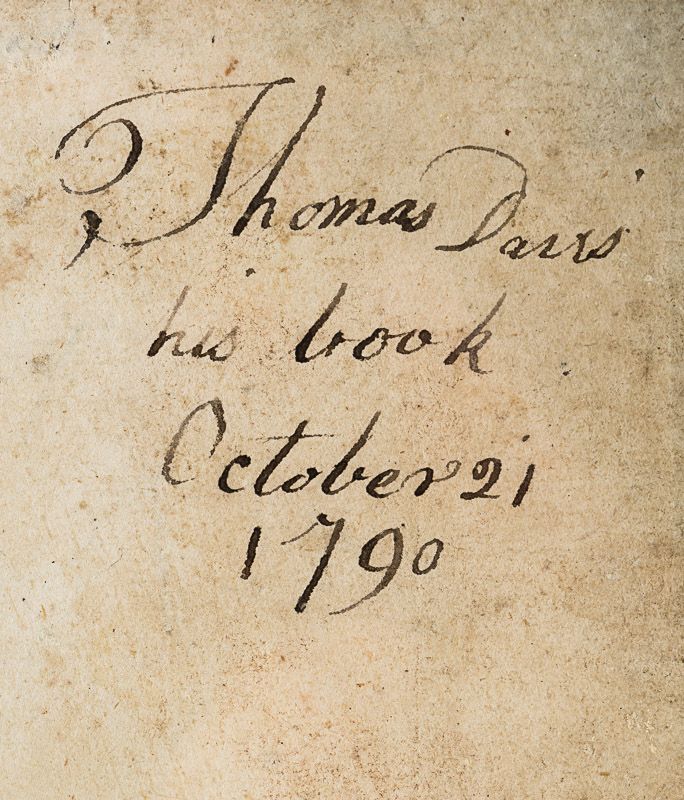 Thomas Davis
his book
October 21
1790